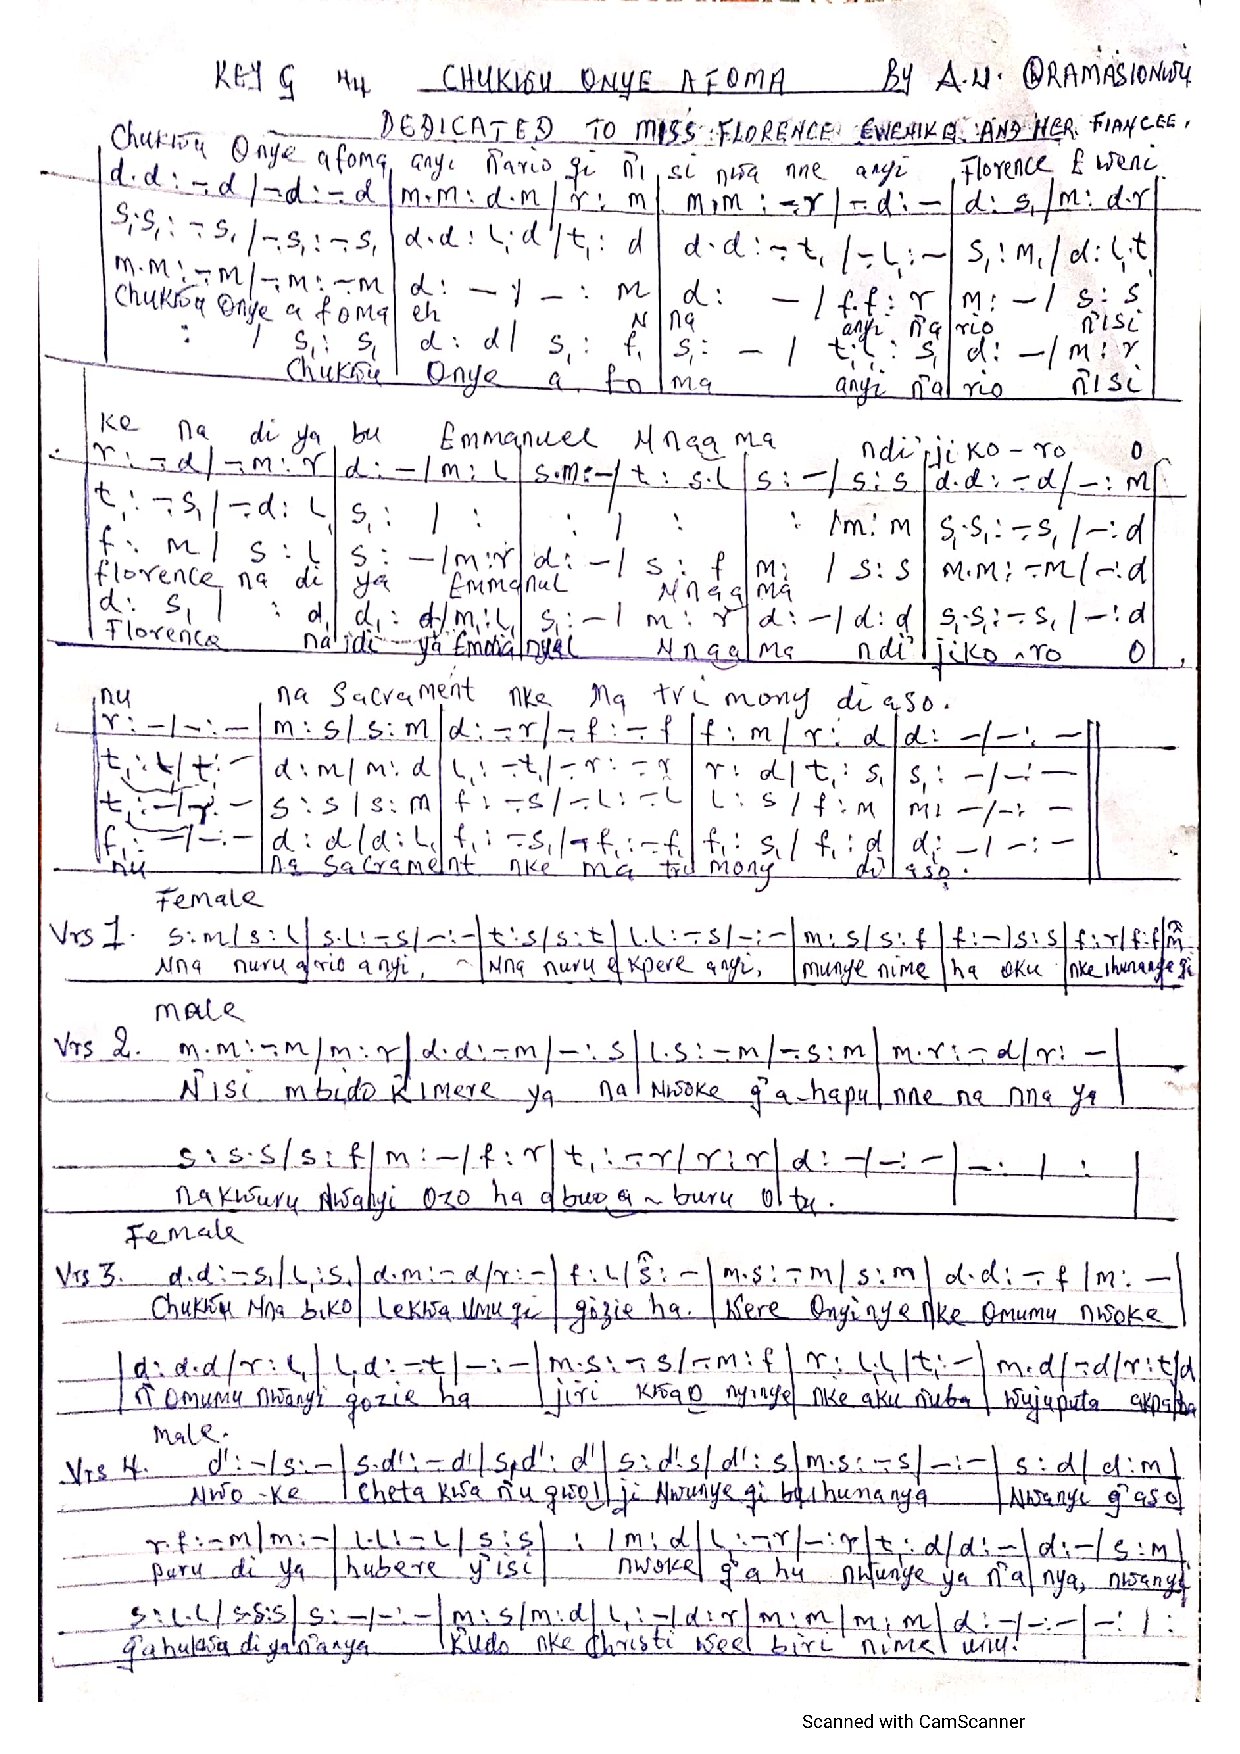 KEY G 4/4 CHUKWU ONYE AFOMA BY A.U. ORAMASIONWU
DEDICATED TO MISS FLORENCE EWENIKE AND HER FIANCEE.
Chukwu Onye afoma anyi n'ario gi n'i si nwa nne anyi Florence Eweni
d.d:-.d/-.d:-.d|m.m:d.m/r:m|m.m:-.r/-.d:-|d:s₁/m:d.r
s₁.s₁:-.s₁/-.s₁:-.s₁|d.d:l₁.d/t₁:d|d.d:-.t₁/-.l₁:-|s₁:m₁/d:l₁.t₁
m.m:-.m/-.m:-.m|d:-/-:m|d:-/f.f:r|m:-/s:s
Chukwu Onye a foma eh N na anyi n'a rio n'isi
:/s₁:s₁|d:d/s₁:f₁|s₁:-/t₁.l₁:s₁|d:-/m:r
Chukwu Onye a fo ma anyi n'a rio n'isi
ke na di ya bu Emmanuel Nnaama ndi jiko-ro O
r:-.d/-.m:r|d:-/m:l|s.m:-/t:s.l|s:-/s:s|d.d:-.d/-:m
t₁:-.s₁/-.d:l₁|s₁:/:|:/:|:/m:m|s₁.s₁:-.s₁/-:d
f:m/s:l|s:-/m:r|d:-/s:f|m:/s:s|m.m:-.m/-:d
florence na di ya Emmanul Nnaama
d:s₁/:d₁|d₁:d/m:l₁|s₁:-/m:r|d:-/d:d|s₁.s₁:-.s₁/-:d
Florence na idi ya Emmanyal Nnaama ndi jiko-ro O
nu na Sacrament nke Ma tri mony di aso.
r:-/-:-|m:s/s:m|d:-.r/-.f:-.f|f:m/r:d|d:-/-:-
t₁:l₁/t₁:-|d:m/m:d|l₁:-.t₁/-.r:-.r|r:d/t₁:s₁|s₁:-/-:-
t₁:-/r:-|s:s/s:m|f:-.s/-.l:-.l|l:s/f:m|m:-/-:-
f₁:-/-:-|d:d/d:l₁|f₁:-.s₁/-.f₁:-.f₁|f₁:s₁/f₁:d|d:-/-:-
nu na Sacrament nke ma tri mony di aso.
Female
Vrs 1. s:m/s:l|s.l:-.s/-:-|t:s/s:t|l.l:-.s/-:-|m:s/s:f|f:-/s:s|f:r/f:f|m
Nna nuru ario anyi, Nna nuru ekpere anyi, munye nime ha oku nke ihunanye gi
male
Vrs 2. m.m:-.m/m:r|d.d:-.m/-:s|l.s:-.m/-.s:m|m.r:-.d/r:-
N'isi mbido kimere ya na Nwoke g'a-hapu nne na nna ya
s:s.s/s:f|m:-/f:r|t₁:-.r/r:r|d:-/-:-|-:/:
nakwuru Nwanyi ozo ha abuo a-buru otu.
Female
Vrs 3. d.d:-.s₁/l₁:s₁|d.m:-.d/r:-|f:l/s:-|m.s:-.m/s:m|d.d:-.f/m:-
Chukwu Nna biko lekwa umu gi gozie ha. Were Onyinye nke Omumu nwoke
d:d.d/r:l₁|l₁.d:-.t₁/-:-|m.s:-.s/-.m:f|r:l₁.l₁/t₁:-|m.d/-.d/r:t₁/d
n'Omumu nwanyi gozie ha jiri kwa onyinye nke aku n'uba wujuputa akpa ha
Male.
Vrs 4. d':-/s:-|s.d':-.d'/s.d':d'|s:d'.s/d':s|m.s:-.s/-:-|s:d/d:m
Nwo-ke cheta kwa n'u gwo ji Nwunye gi bu ihunanya Nwanyi g'aso
r.f:-.m/m:-|l.l:-.l/s:s|:/m:d|l₁:-.r/-:r|t₁:d/d:-|d:-/s:m
puru di ya hubere y'isi nwoke g'a hu nwunye ya n'a nya, nwanyi
s:l.l/s.s:s|s:-/-:-|m:s/m:d|l₁:-/d:r|m:m/m:m|d:-/-:-|-:/:
g'ahukwa di ya n'anya k'udo nke Christi wee biri nime unu.
Scanned with CamScanner